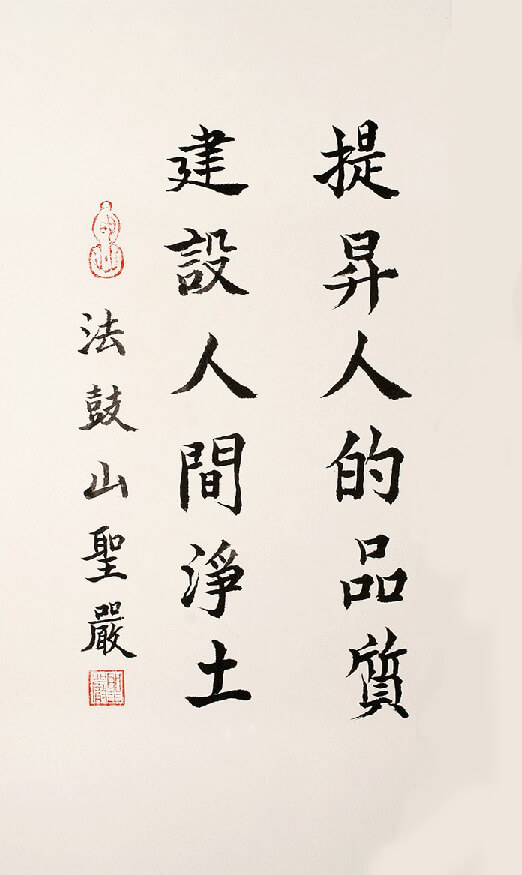 提昇人的品質
建設人間淨土
法鼓山聖嚴